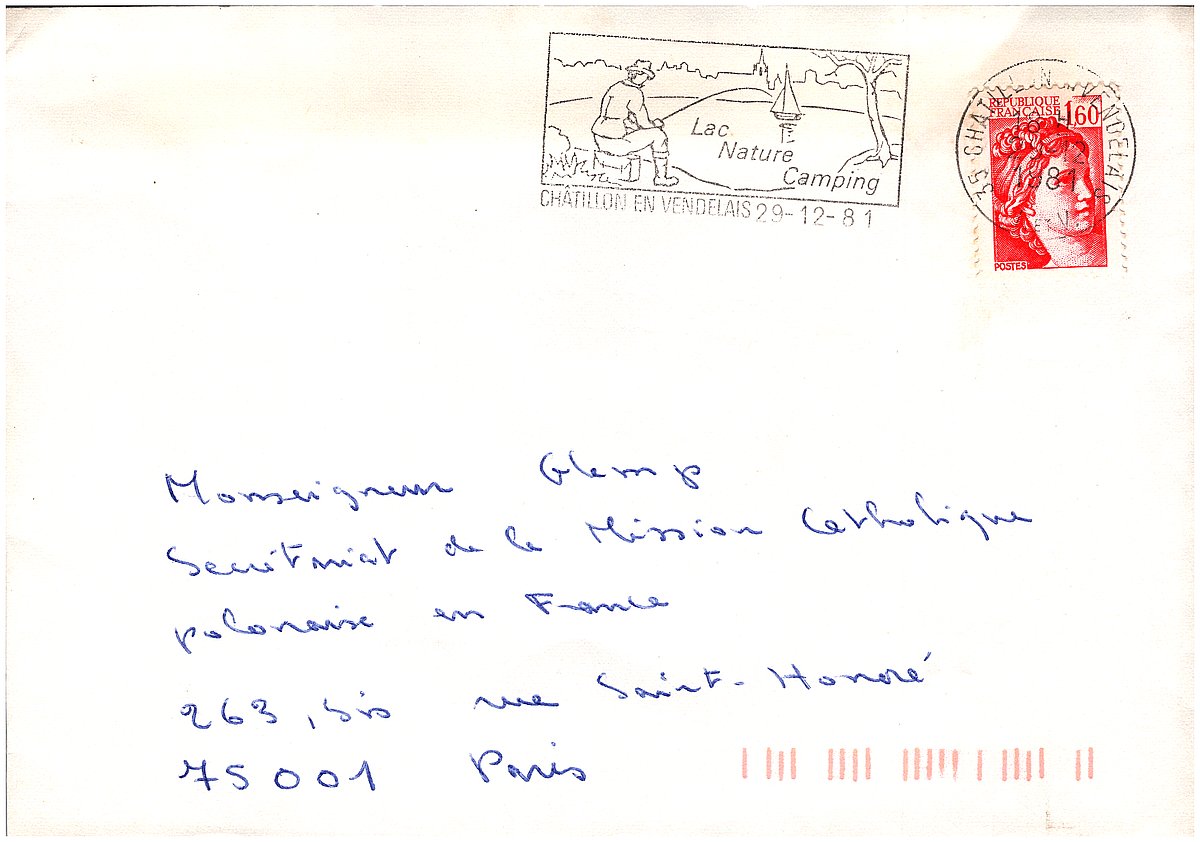 Lac
Nature
Camping
CHÂTILLON EN VENDELAIS 29-12-81
35 CHATILLON VENDELAIS
1981
REPUBLIQUE
FRANÇAISE 1,60
POSTES
Monseigneur Glemp
Secrétariat de la Mission Catholique
polonaise en France
263, bis rue Saint-Honoré
75001 Paris